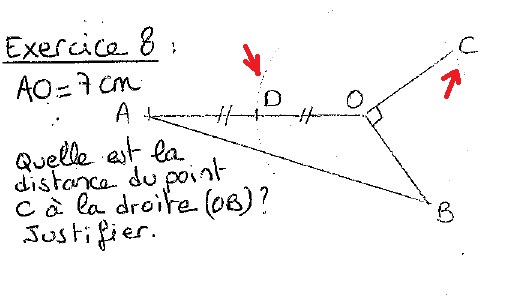 Exercice 8 :
AO = 7 cm
C
D
O
A
Quelle est la
distance du point
C à la droite (OB) ?
Justifier.
B